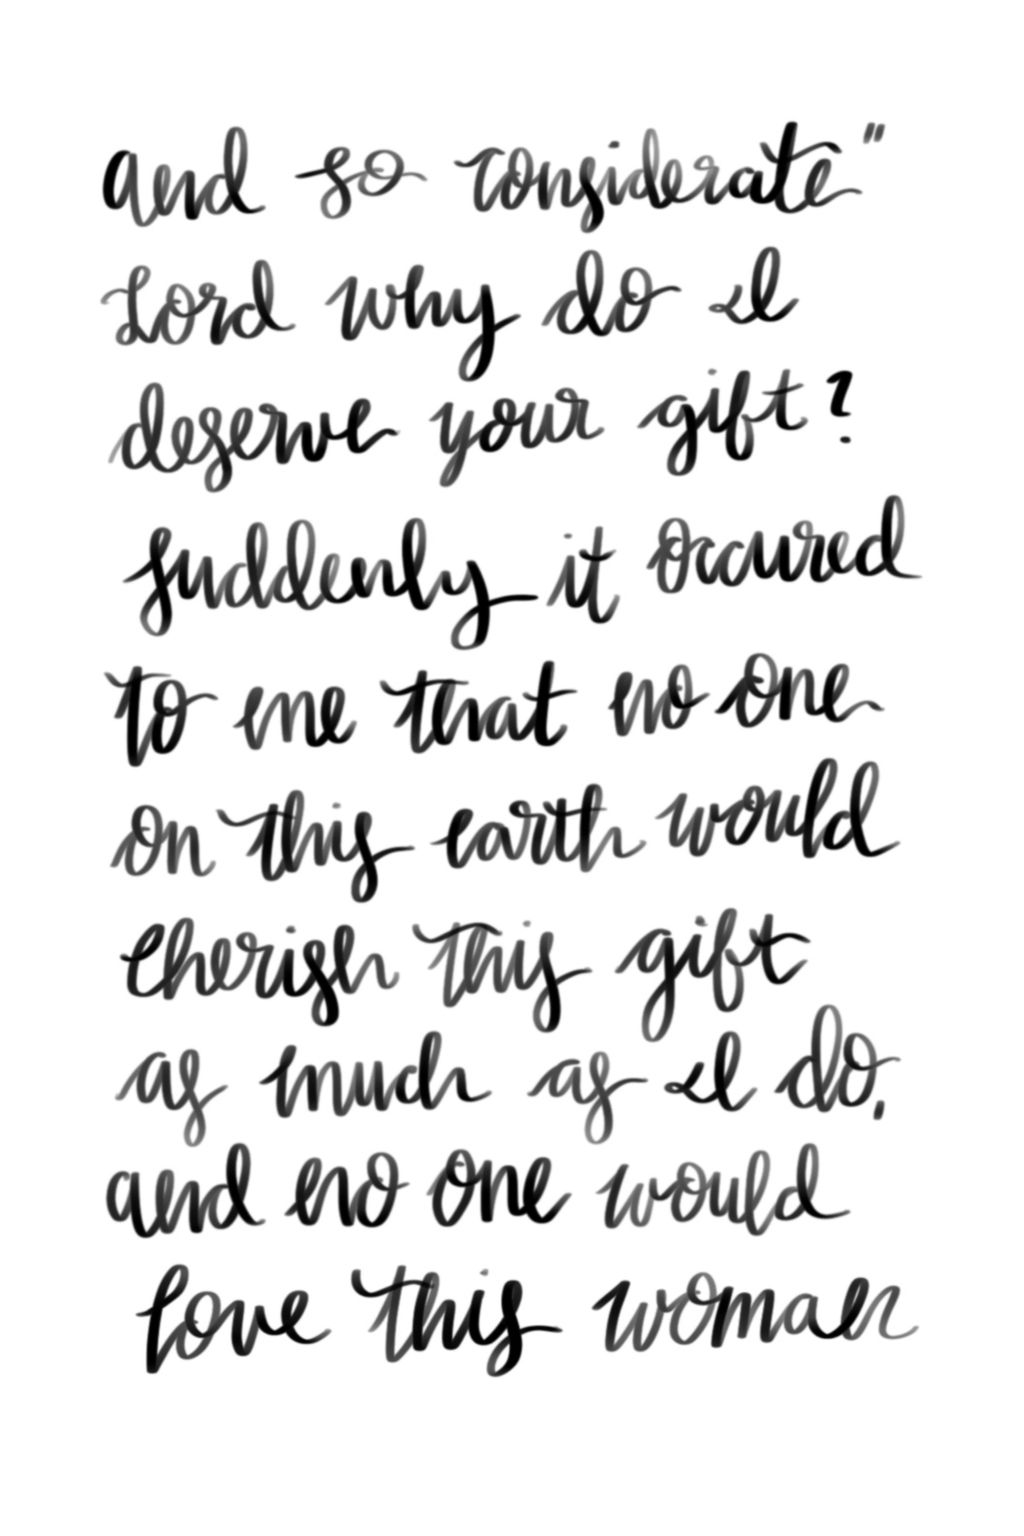 and so considerate"
Lord why do I
deserve your gift?
suddenly it occured
to me that no one
on this earth would
cherish this gift
as much as I do,
and no one would
love this woman